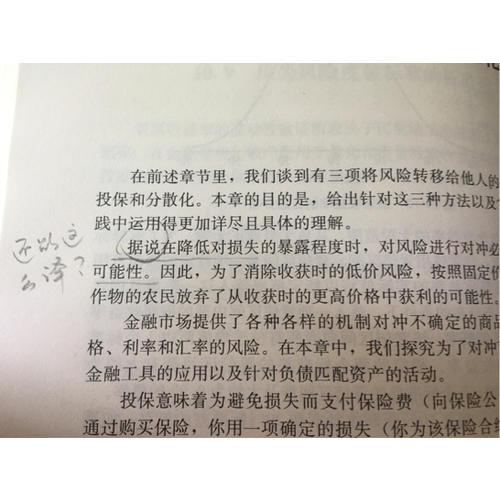 在前述章节里，我们谈到有三项将风险转移给他人的
投保和分散化。本章的目的是，给出针对这三种方法以及
践中运用得更加详尽且具体的理解。
据说在降低对损失的暴露程度时，对风险进行对冲必
可能性。因此，为了消除收获时的低价风险，按照固定价
作物的农民放弃了从收获时的更高价格中获利的可能性。
金融市场提供了各种各样的机制对冲不确定的商品
格、利率和汇率的风险。在本章中，我们探究为了对冲
金融工具的应用以及针对负债匹配资产的活动。
投保意味着为避免损失而支付保险费（向保险公
通过购买保险，你用一项确定的损失（你为该保险合
还以这
么译？